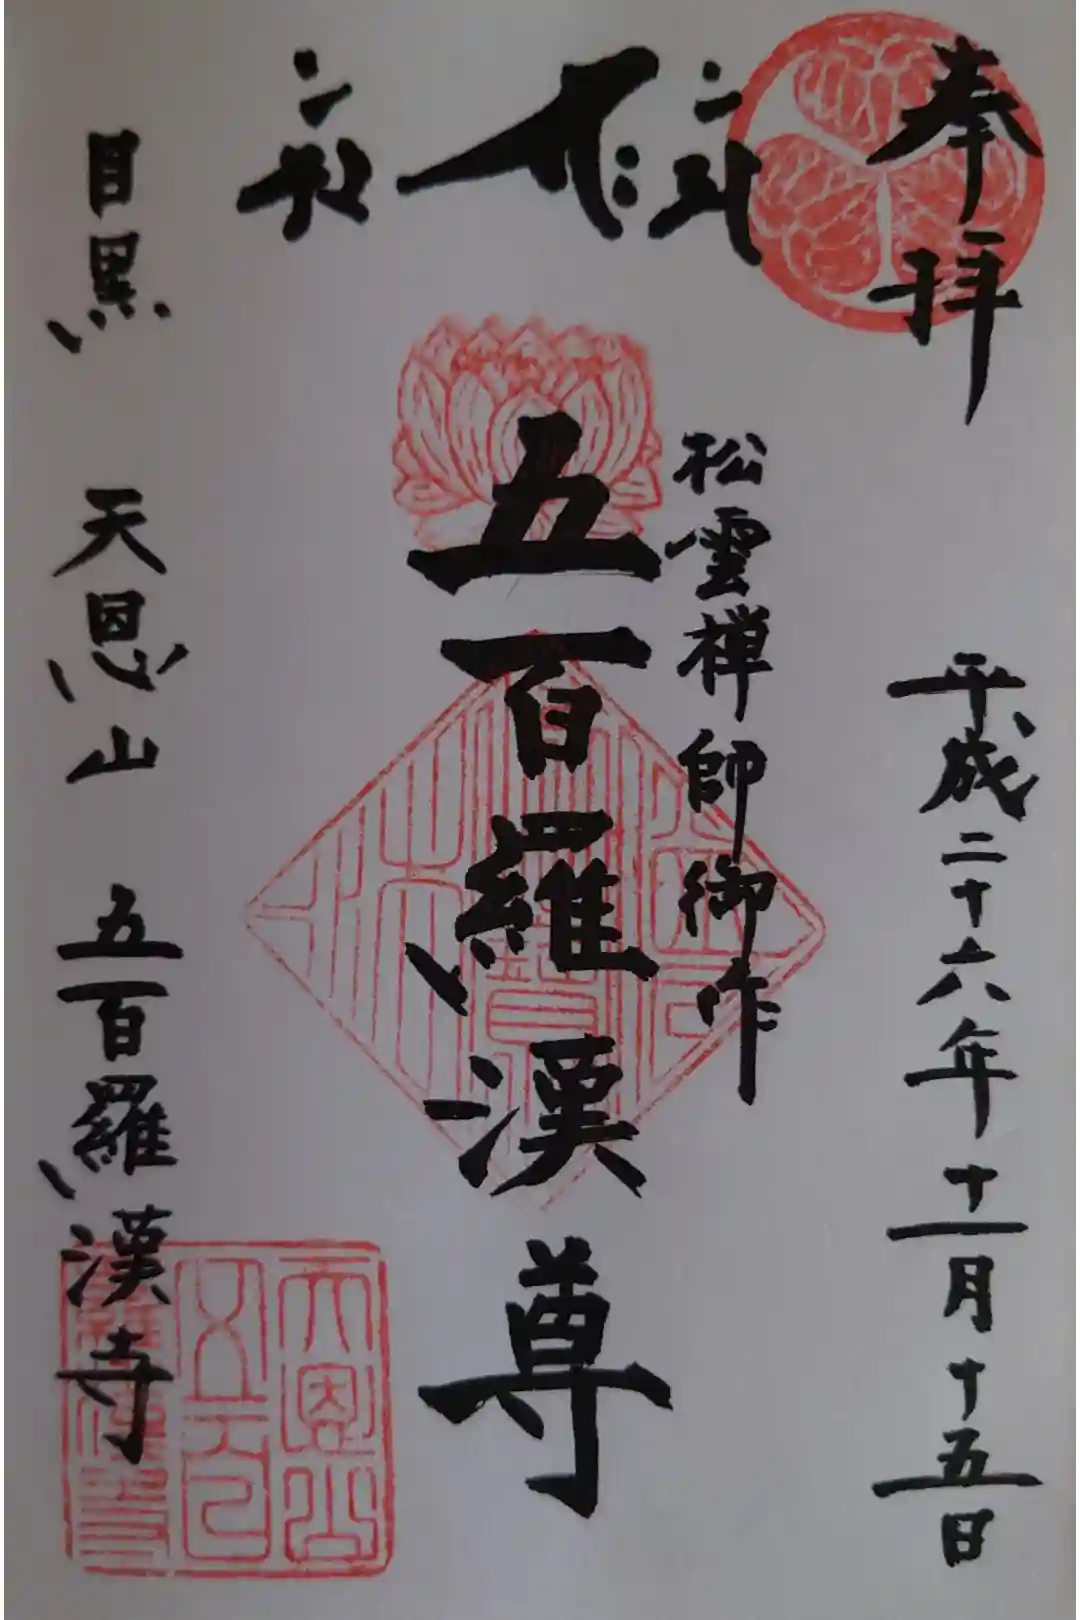 奉拝
平成二十六年十一月十五日
松雲禅師御作
五百羅漢尊
目黒 天恩山 五百羅漢寺
天恩山
五百
羅漢寺